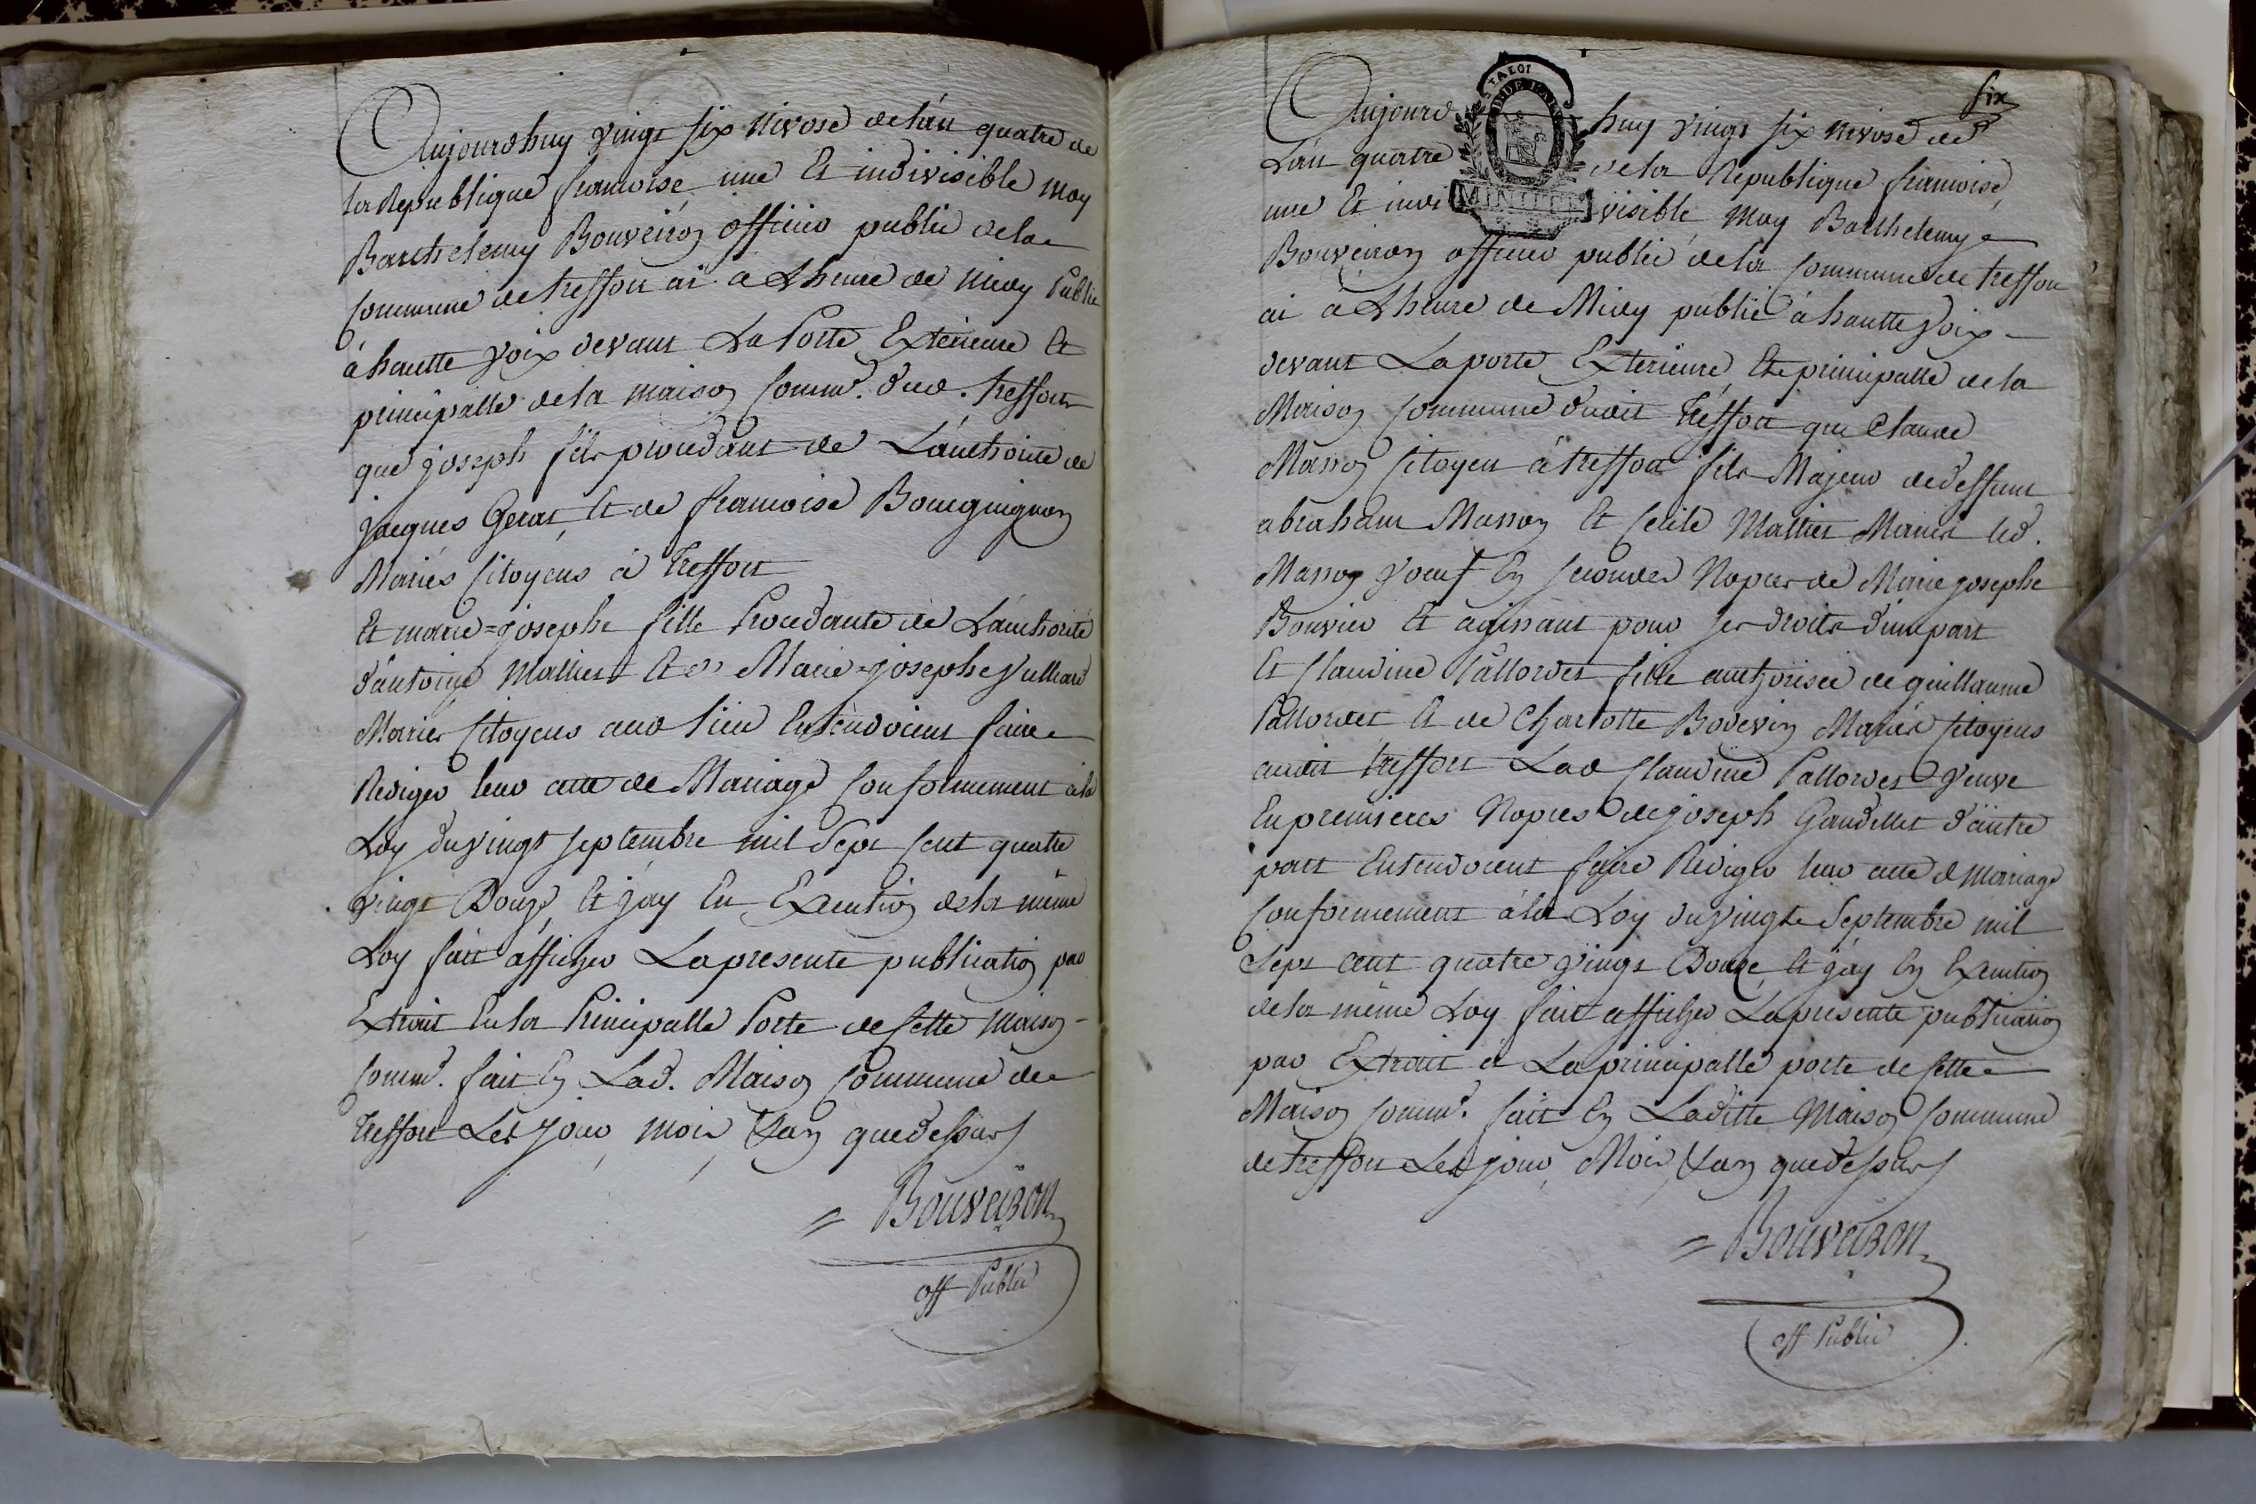 Aujourdhuy vingt six nivose de l'an quatre de
la Republique francoise une Et indivisible moy
Barthelemy Bouveiron officier public de la
Commune de treffort ai a Lheure de midy Publié
à hautte voix devant La Porte Exterieure Et
principalle de la maison Comm.e dud. treffort
que joseph fils procedant de L'authorité de
jacques Gerat Et de francoise Bourguignon
Mariés Citoyens à Treffort
Et marie=josephe fille Procedante de L'authorité
d'antoine Mallet Et d' Marie=josephe Vulliard
Mariés Citoyens aud lieu Entendoient faire
Rediger leur acte de Mariage Conformement à la
Loy du vingt septembre mil Sept Cent quatre
vingt Douze Et j'ay En Execution de la même
Loy fait afficher La presente publication par
Extrait En la Principalle Porte de Cette maison
Comm.e fait En Lad. Maison Commune de
Treffort Les jour, mois, & an que dessus
Bouveiron
off Public
six
Aujourd huy vingt six nivose de
L'an quatre de la Republique francoise,
une Et indi visible, moy Barthelemy
Bouveiron officier public de la Commune de treffort
ai à Lheure de Midy publié à hautte voix
devant La porte Exterieure Et principalle de la
Maison Commune dudit Treffort que Claude
Masson Citoyen à treffort fils Majeur de deffunt
abraham Masson Et Cecile Mallet Mariés led.
Masson voeuf En secondes Nopces de Marie josephe
Bouvier Et agissant pour ses droits d'une part
Et Claudine Pallordet fille authorisée de guillaume
Pallordet Et de Charlotte Bodevin Mariés Citoyens
audit treffort Lad Claudine Pallordet veuve
En premieres Nopces de joseph Gaudillet d'autre
part Entendoient faire Rediger leur acte d mariage
Conformement à la Loy du vingt Septembre mil
Sept cent quatre vingt Douze Et j'ay En Execution
de la même Loy fait afficher La presente publication
par Extrait à La principalle porte de Cette
Maison Comm.e fait En Laditte Maison Commune
de treffort Les jour, Mois, & an que dessus
Bouveiron
off Public
LA LOI
MINUTE